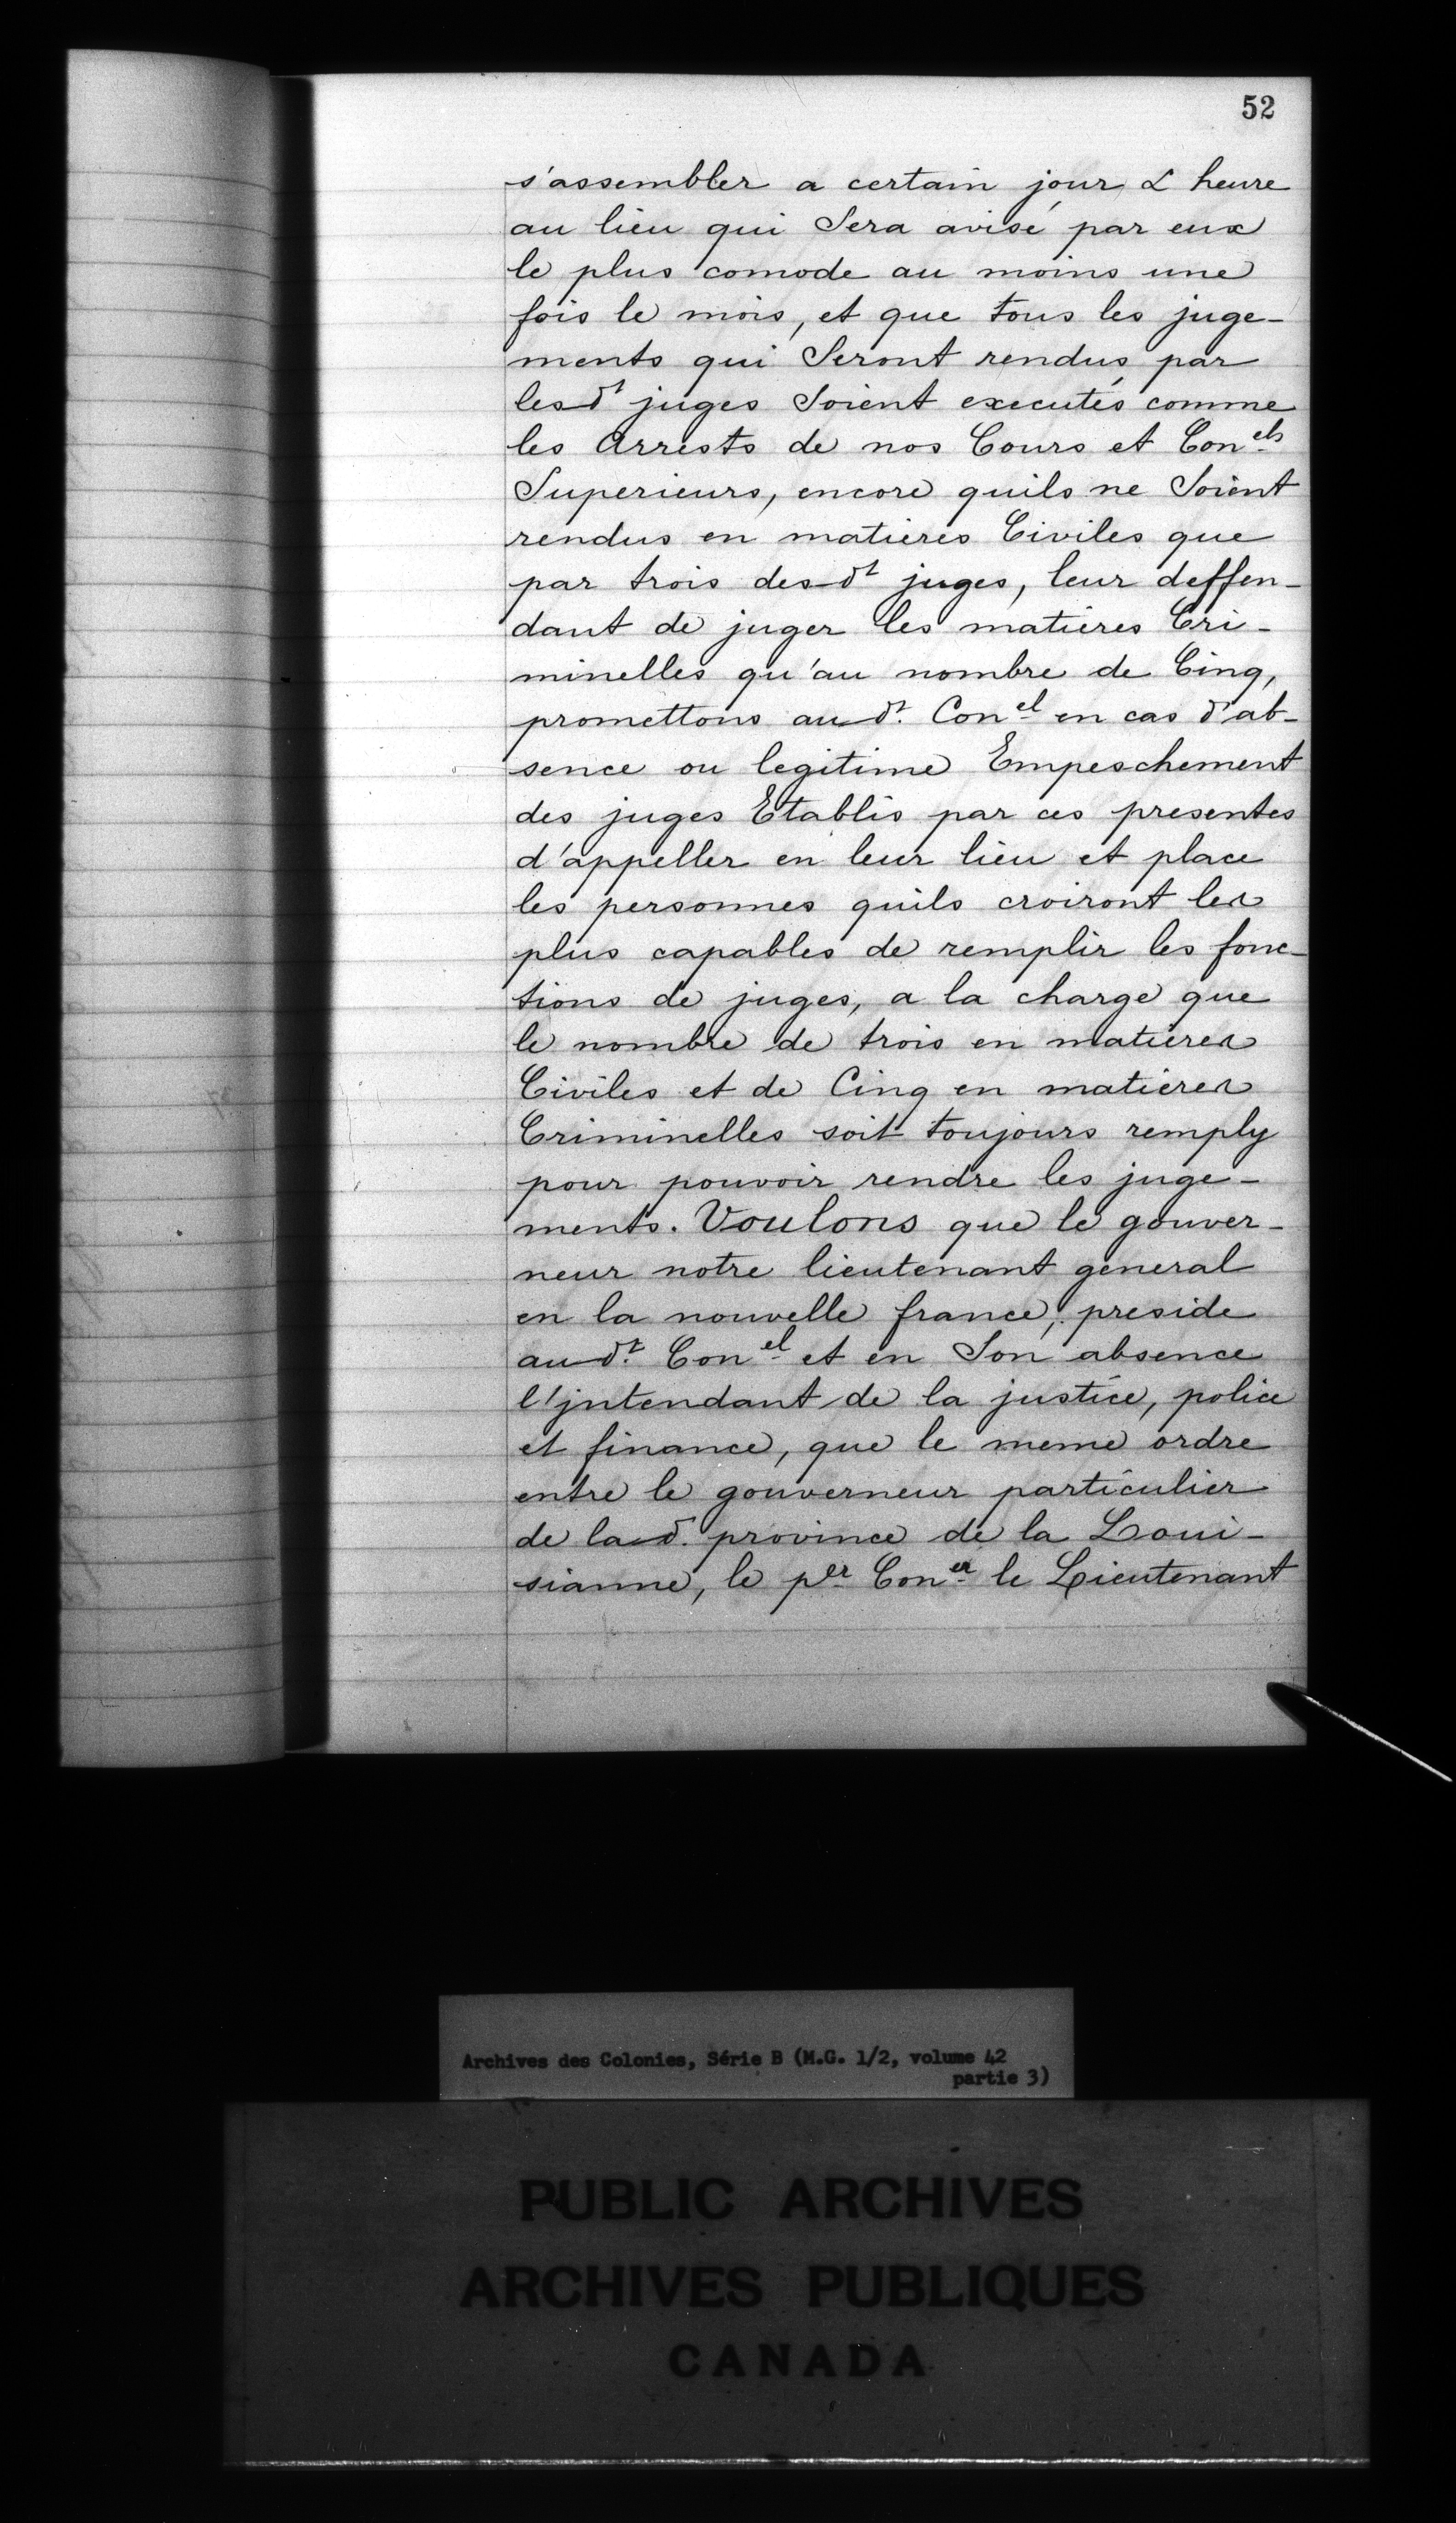 52
s'assembler a certain jour & heure
au lieu qui Sera avisé par eux
le plus comode au moins une
fois le mois, et que tous les juge-
ments qui Seront rendus par
les dt juges Soient executés comme
les Arrests de nos Cours et Conels
Superieurs, encore quils ne Soient
rendus en matieres Civiles que
par trois des dt juges, leur deffen-
dant de juger les matieres Cri-
minelles qu'au nombre de Cinq,
promettons au dt. Conel en cas d'ab-
sence ou legitime Empeschement
des juges Etablis par ces presentes
d'appeller en leur lieu et place
les personnes quils croiront les
plus capables de remplir les fonc-
tions de juges, a la charge que
le nombre de trois en matieres
Civiles et de Cinq en matieres
Criminelles soit toujours remply
pour pouvoir rendre les juge-
ments. Voulons que le gouver-
neur notre lieutenant general
en la nouvelle france, preside
au dt. Conel et en Son absence
l'jntendant de la justice, police
et finance, que le meme ordre
entre le gouverneur particulier
de la d. province de la Loui-
sianne, le per Coner le Lieutenant
Archives des Colonies, Série B (M.G. 1/2, volume 42
partie 3)
PUBLIC ARCHIVES
ARCHIVES PUBLIQUES
CANADA